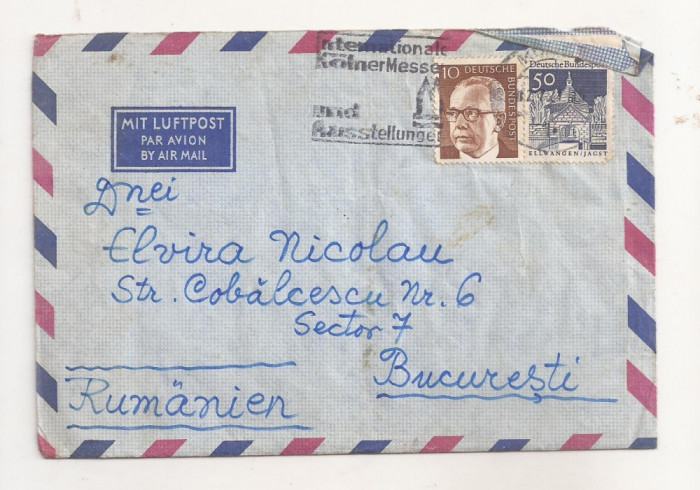 Internationale
Kölner Messen
und
Ausstellungen
10 DEUTSCHE BUNDESPOST
Deutsche Bundespost
50
ELLWANGEN/JAGST
MIT LUFTPOST
PAR AVION
BY AIR MAIL
Dnei
Elvira Nicolau
Str. Cobălcescu Nr. 6
Sector 7
București
Rumänien